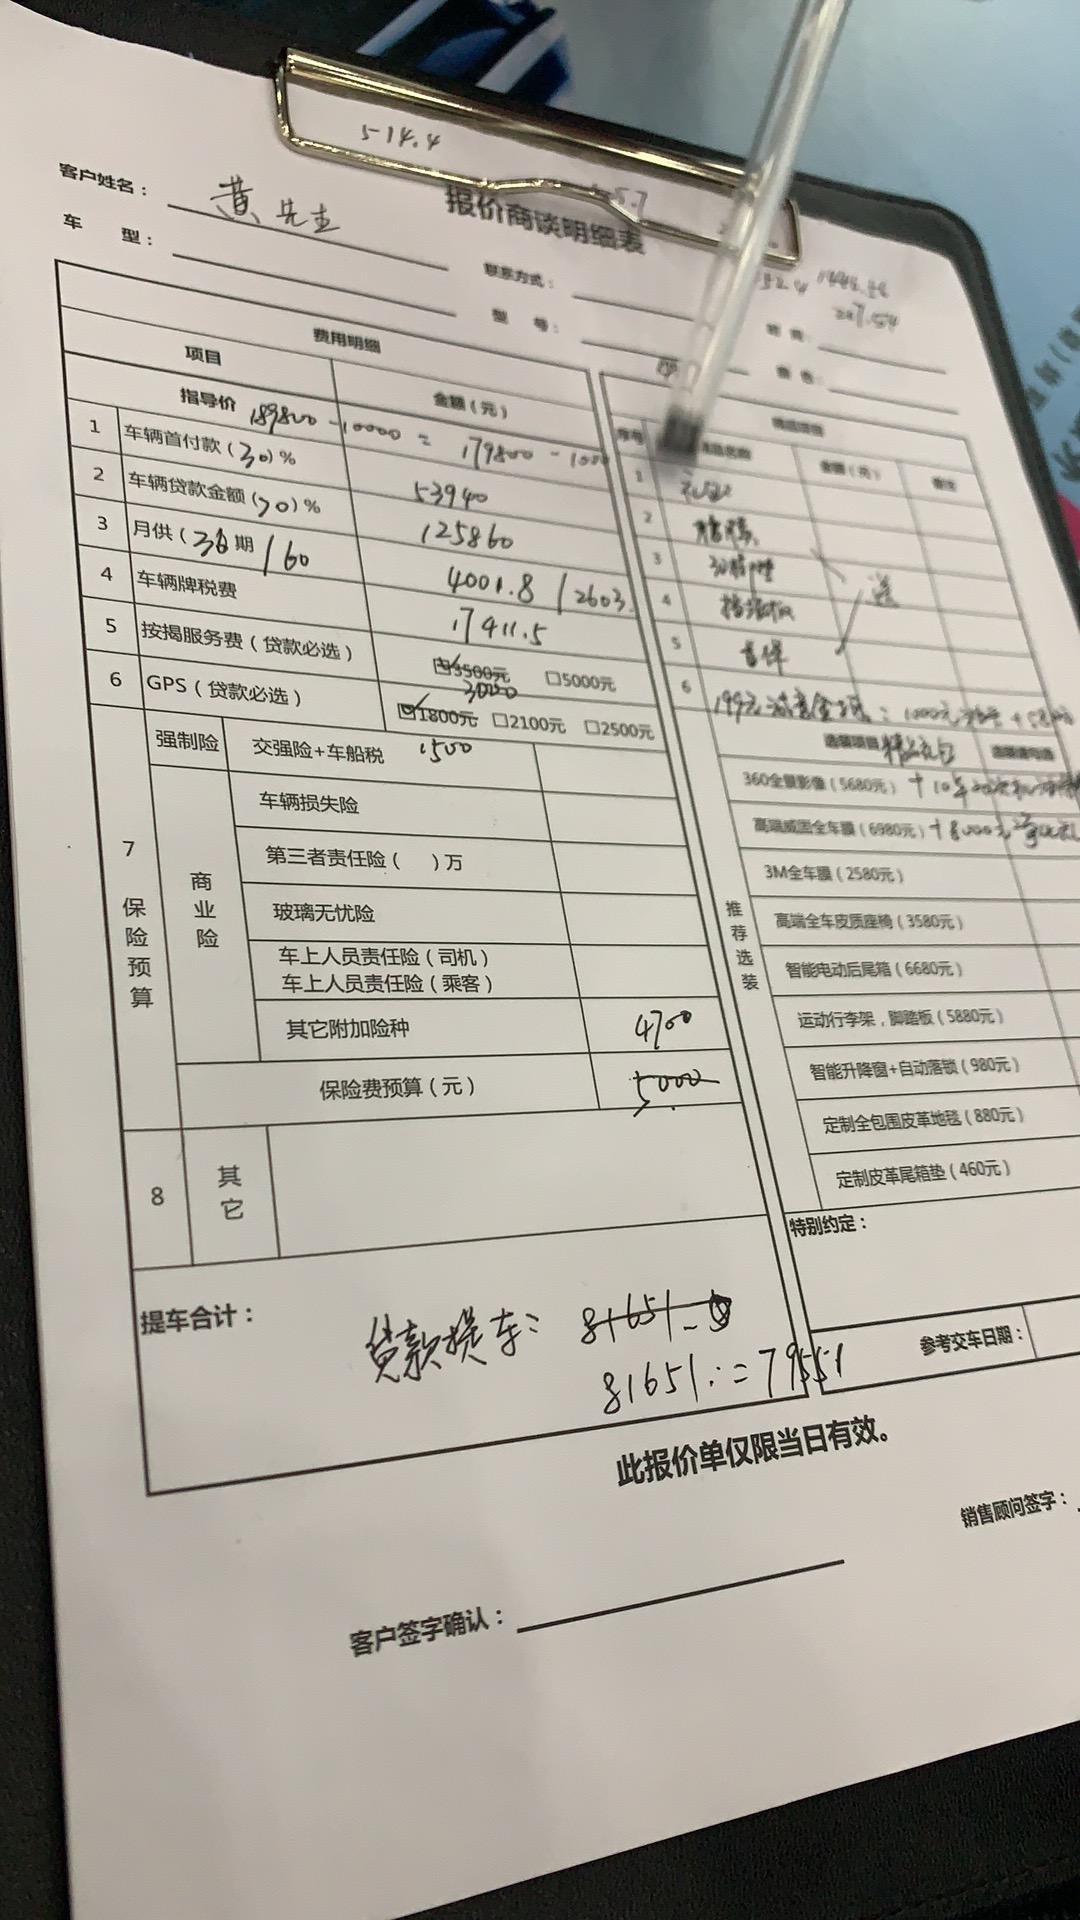 5-14.4
5.7
报价商谈明细表
客户姓名： 黄先生
联系方式：
车 型：
型 号：
1444.46
207.54
费用明细
项目
金额（元）
指导价 189800 - 10000 = 179800 - 1000
1 车辆首付款 (30) % 53940
2 车辆贷款金额 (70) % 125860
3 月供 (36期 / 60 4001.8 / 2603.
4 车辆牌税费 17411.5
5 按揭服务费（贷款必选） ☑3500元 □5000元
3000
6 GPS（贷款必选） ☑1800元 □2100元 □2500元
7 保险预算
强制险 交强险+车船税 1500
商业险
车辆损失险
第三者责任险（ ）万
玻璃无忧险
车上人员责任险（司机）
车上人员责任险（乘客）
其它附加险种 4700
保险费预算（元） 5000
8 其它
提车合计：
贷款提车： 81651-
81651.=79551
序号
金额（元）
备注
1
2
3
4
5 首保
6
送
360全景影像（5680元）
高端威固全车膜（6980元）
3M全车膜（2580元）
推荐选装
高端全车皮质座椅（3580元）
智能电动后尾箱（6680元）
运动行李架，脚踏板（5880元）
智能升降窗+自动落锁（980元）
定制全包围皮革地毯（880元）
定制皮革尾箱垫（460元）
特别约定：
参考交车日期：
此报价单仅限当日有效。
销售顾问签字：
客户签字确认：